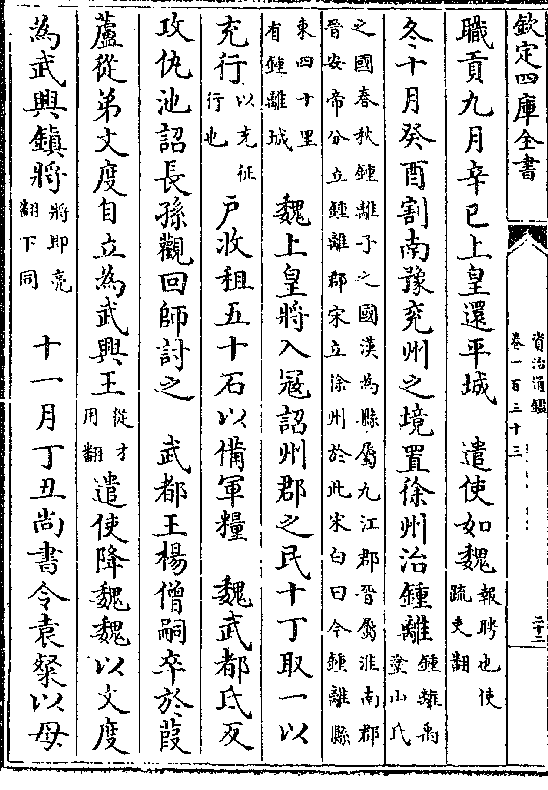 欽定四庫全書
資治通鑑
卷一百三十三
職貢九月辛巳上皇還平城　遣使如魏報聘也使疏吏翻
冬十月癸酉割南豫兗州之境置徐州治鍾離鍾離禹塗山氏
之國春秋鍾離子之國漢為縣屬九江郡晉屬淮南郡
晉安帝分立鍾離郡宋立徐州於此宋白曰今鍾離縣
東四十里有鍾離城　魏上皇將入冦詔州郡之民十丁取一以
充行以充征行也戶收租五十石以備軍糧　魏武都氐反
攻仇池詔長孫觀回師討之　武都王楊僧嗣卒於葭
蘆從弟文度自立為武興王從才用翻遣使降魏魏以文度
為武興鎮將將即亮翻下同　十一月丁丑尚書令袁粲以母